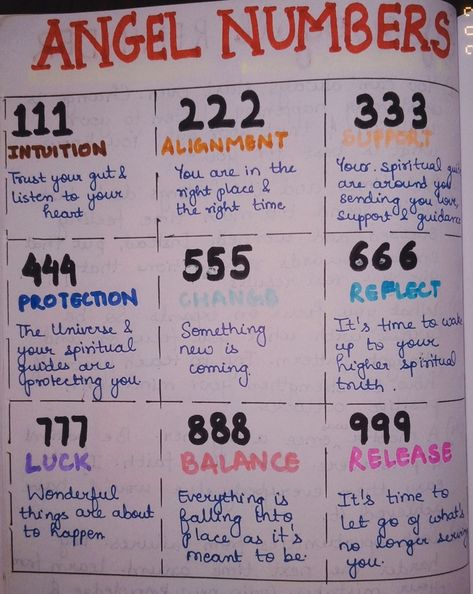 ANGEL NUMBERS
111
INTUITION
Trust your gut &
listen to your
heart
222
ALIGNMENT
You are in the
right place &
the right time
333
SUPPORT
Your spiritual
are around you
sending you love,
support & guidance
444
PROTECTION
The Universe &
your spiritual
guides are
protecting you
555
CHANGE
Something
new is
coming.
666
REFLECT
It's time to wake
up to your
higher spiritual
truth.
777
LUCK
Wonderful
things are about
to happen
888
BALANCE
Everything is
falling into
place as it's
meant to be.
999
RELEASE
It's time to
let go of what's
no longer serving
you.